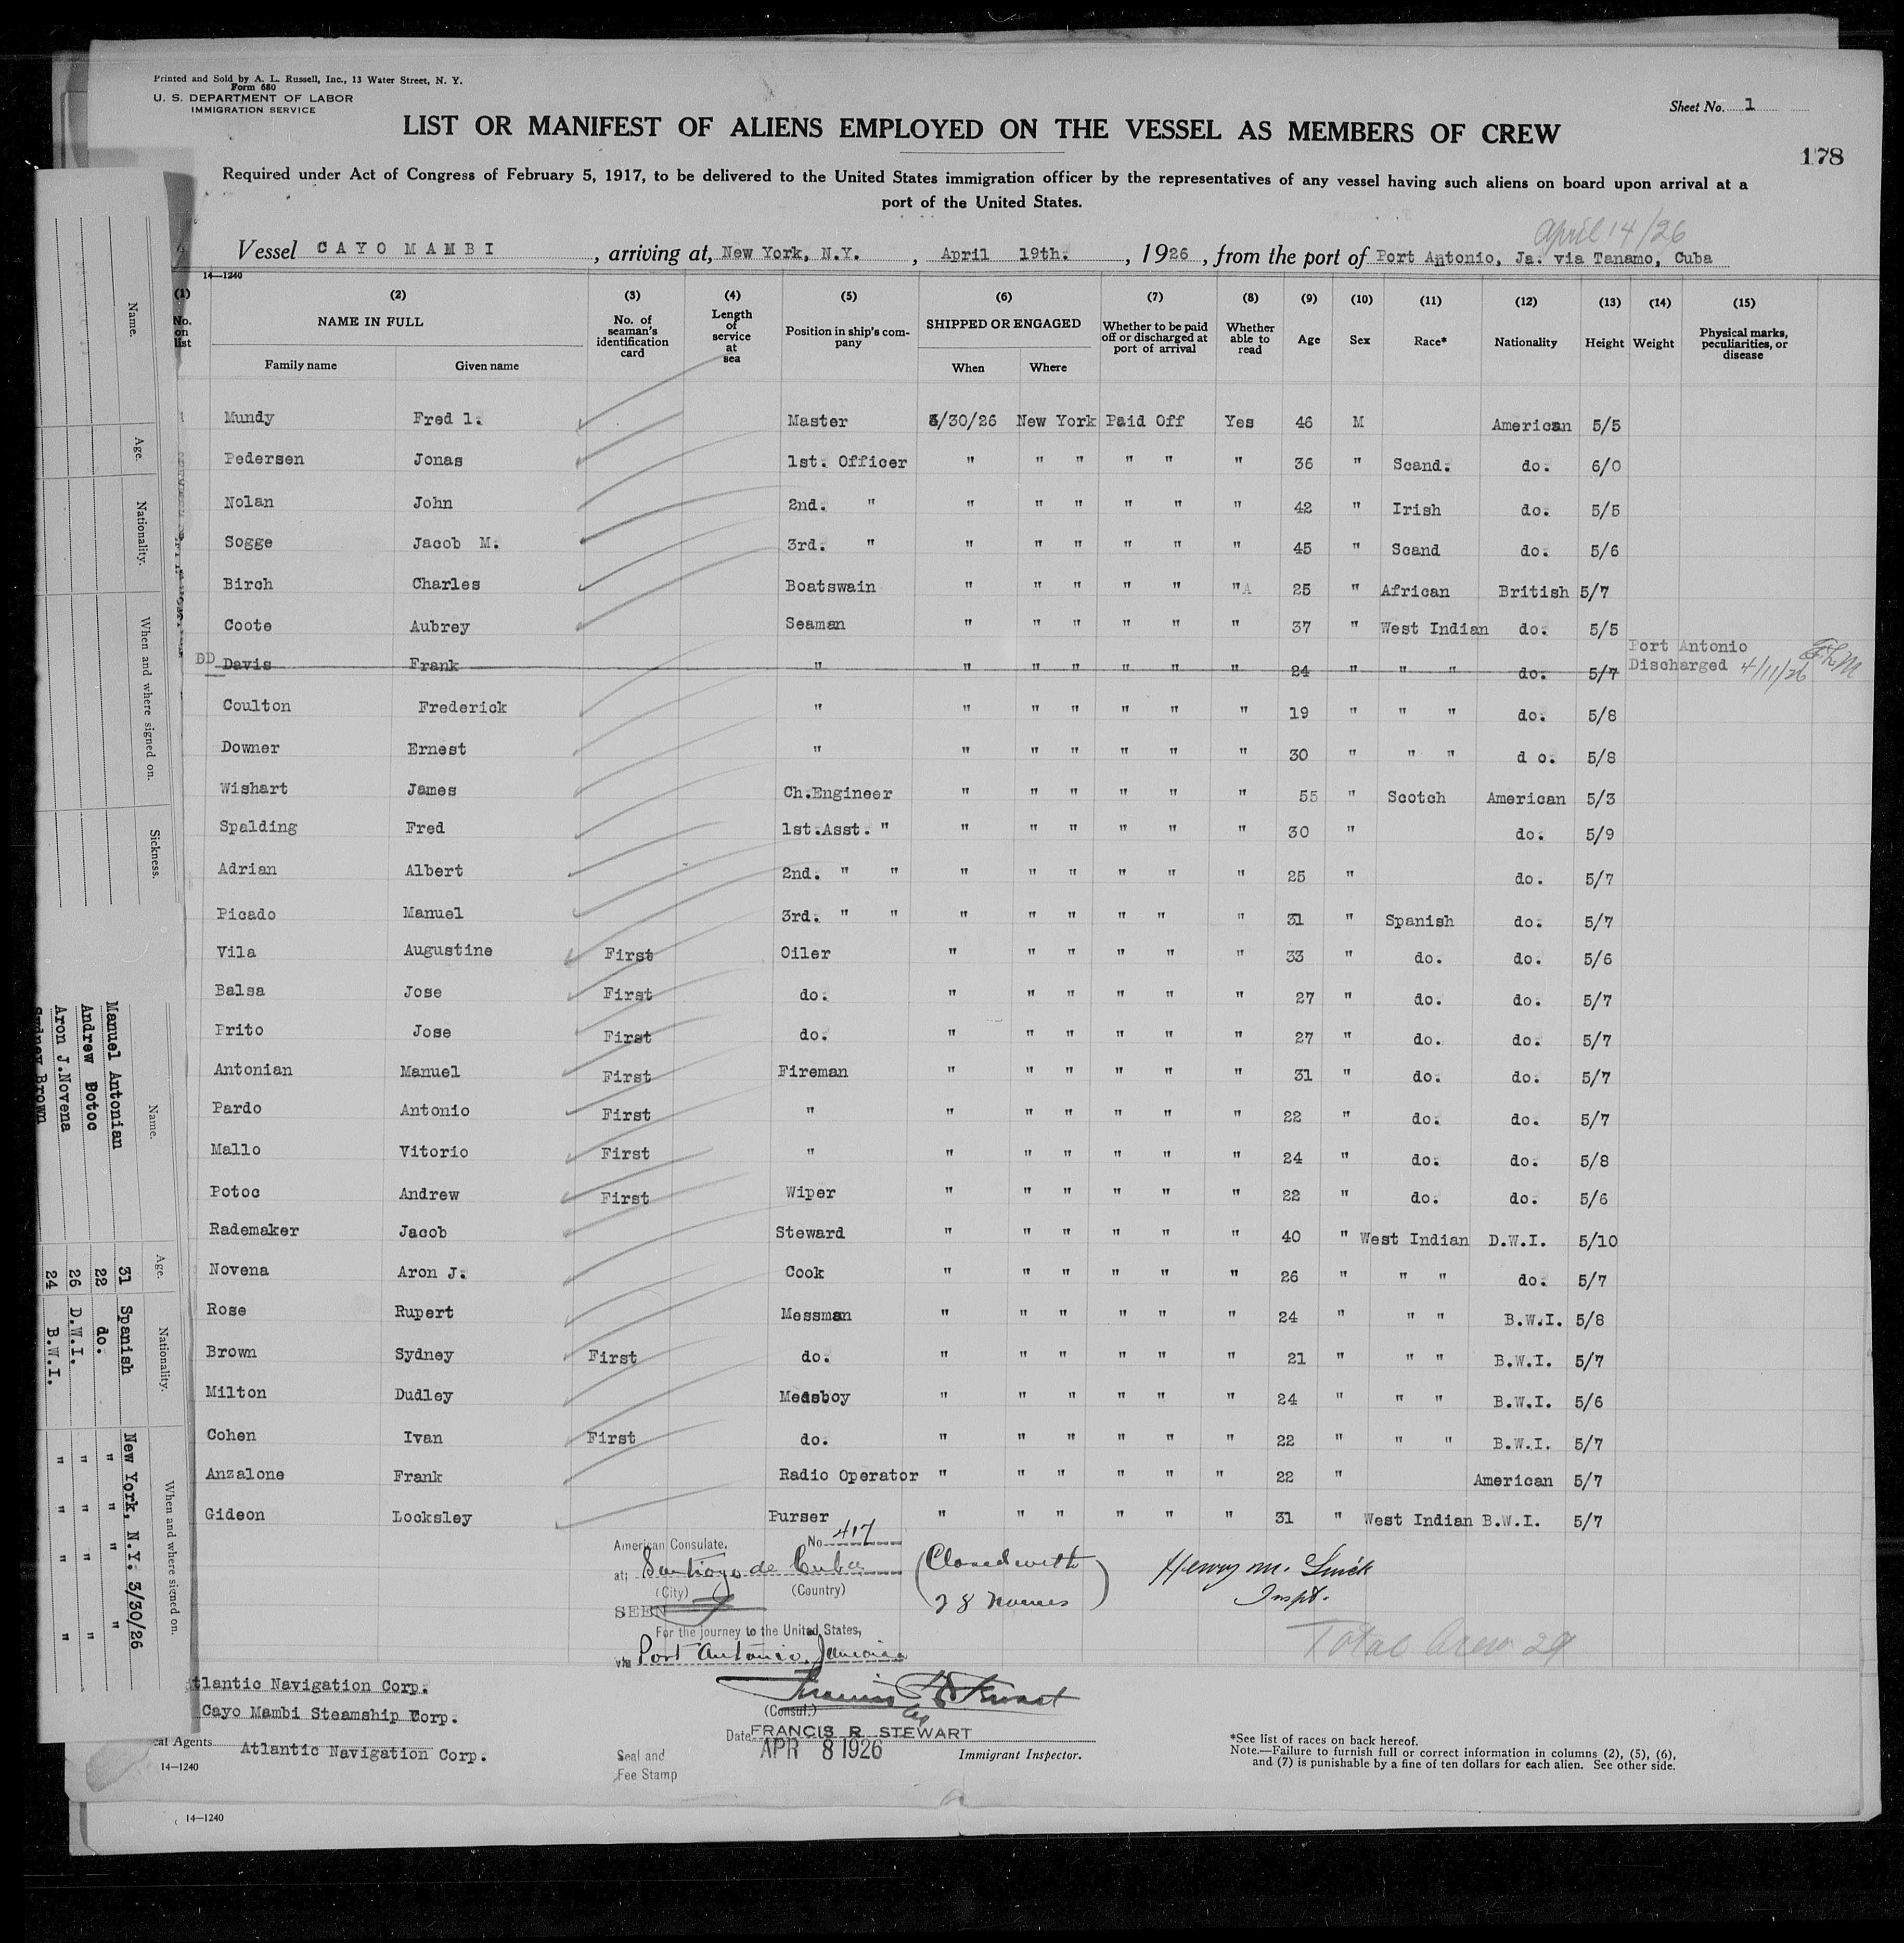 Printed and Sold by A. L. Russell, Inc., 13 Water Street, N. Y.
Form 680
U. S. DEPARTMENT OF LABOR
IMMIGRATION SERVICE
Sheet No. 1
LIST OR MANIFEST OF ALIENS EMPLOYED ON THE VESSEL AS MEMBERS OF CREW
178
Required under Act of Congress of February 5, 1917, to be delivered to the United States immigration officer by the representatives of any vessel having such aliens on board upon arrival at a
port of the United States.
April 14/26
Vessel CAYO MAMBI, arriving at, New York, N.Y., April 19th., 1926, from the port of Port Antonio, Ja. via Tanamo, Cuba
14—1240
(1) (2) (3) (4) (5) (6) (7) (8) (9) (10) (11) (12) (13) (14) (15)
No. on list NAME IN FULL Family name Given name No. of seaman's identification card Length of service at sea Position in ship's company SHIPPED OR ENGAGED When Where Whether to be paid off or discharged at port of arrival Whether able to read Age Sex Race* Nationality Height Weight Physical marks, peculiarities, or disease
Mundy Fred l. Master 3/30/26 New York Paid Off Yes 46 M American 5/5
Pedersen Jonas 1st. Officer " " " " " " 36 " Scand. do. 6/0
Nolan John 2nd. " " " " " " " 42 " Irish do. 5/5
Sogge Jacob M. 3rd. " " " " " " " 45 " Scand do. 5/6
Birch Charles Boatswain " " " " " " 25 " African British 5/7
Coote Aubrey Seaman " " " " " " 37 " West Indian do. 5/5
DD Davis Frank " " " " " " " 24 " " " do. 5/7 Port Antonio Discharged 4/11/26
Coulton Frederick " " " " " " " 19 " " " do. 5/8
Downer Ernest " " " " " " " 30 " " " d o. 5/8
Wishart James Ch.Engineer " " " " " " 55 " Scotch American 5/3
Spalding Fred 1st.Asst. " " " " " " " 30 " do. 5/9
Adrian Albert 2nd. " " " " " " " " 25 " do. 5/7
Picado Manuel 3rd. " " " " " " " " 31 " Spanish do. 5/7
Vila Augustine First Oiler " " " " " " 33 " do. do. 5/6
Balsa Jose First do. " " " " " " 27 " do. do. 5/7
Prito Jose First do. " " " " " " 27 " do. do. 5/7
Antonian Manuel First Fireman " " " " " " 31 " do. do. 5/7
Pardo Antonio First " " " " " " " 22 " do. do. 5/7
Mallo Vitorio First " " " " " " " 24 " do. do. 5/8
Potoc Andrew First Wiper " " " " " " 22 " do. do. 5/6
Rademaker Jacob Steward " " " " " " 40 " West Indian D.W.I. 5/10
Novena Aron J. Cook " " " " " " 26 " " " do. 5/7
Rose Rupert Messman " " " " " " 24 " " " B.W.I. 5/8
Brown Sydney First do. " " " " " " 21 " " " B.W.I. 5/7
Milton Dudley Messboy " " " " " " 24 " " " B.W.I. 5/6
Cohen Ivan First do. " " " " " " 22 " " " B.W.I. 5/7
Anzalone Frank Radio Operator " " " " " " 22 " American 5/7
Gideon Locksley Purser " " " " " " 31 " West Indian B.W.I. 5/7
American Consulate. No 417
at; Santiago de Cuba
(City) (Country)
SEEN
For the journey to the United States,
via Port Antonio, Jamaica
(Closed with
28 names)
Henry M.
Inspt.
Total Crew 29
(Consul.)
Date FRANCIS R. STEWART
APR 8 1926
Immigrant Inspector.
Seal and
Fee Stamp
tlantic Navigation Corp.
Cayo Mambi Steamship Corp.
cal Agents Atlantic Navigation Corp.
14—1240
*See list of races on back hereof.
Note.—Failure to furnish full or correct information in columns (2), (5), (6),
and (7) is punishable by a fine of ten dollars for each alien. See other side.
14—1240
Name. Age. Nationality. When and where signed on. Sickness.
Name. Age. Nationality. When and where signed on.
Manuel Antonian 31 Spanish New York, N.Y. 3/30/26
Andrew Potoc 22 do. " " " "
Aron J.Novena 26 D.W.I. " " " "
Sydney Brown 24 B.W.I. " " " "